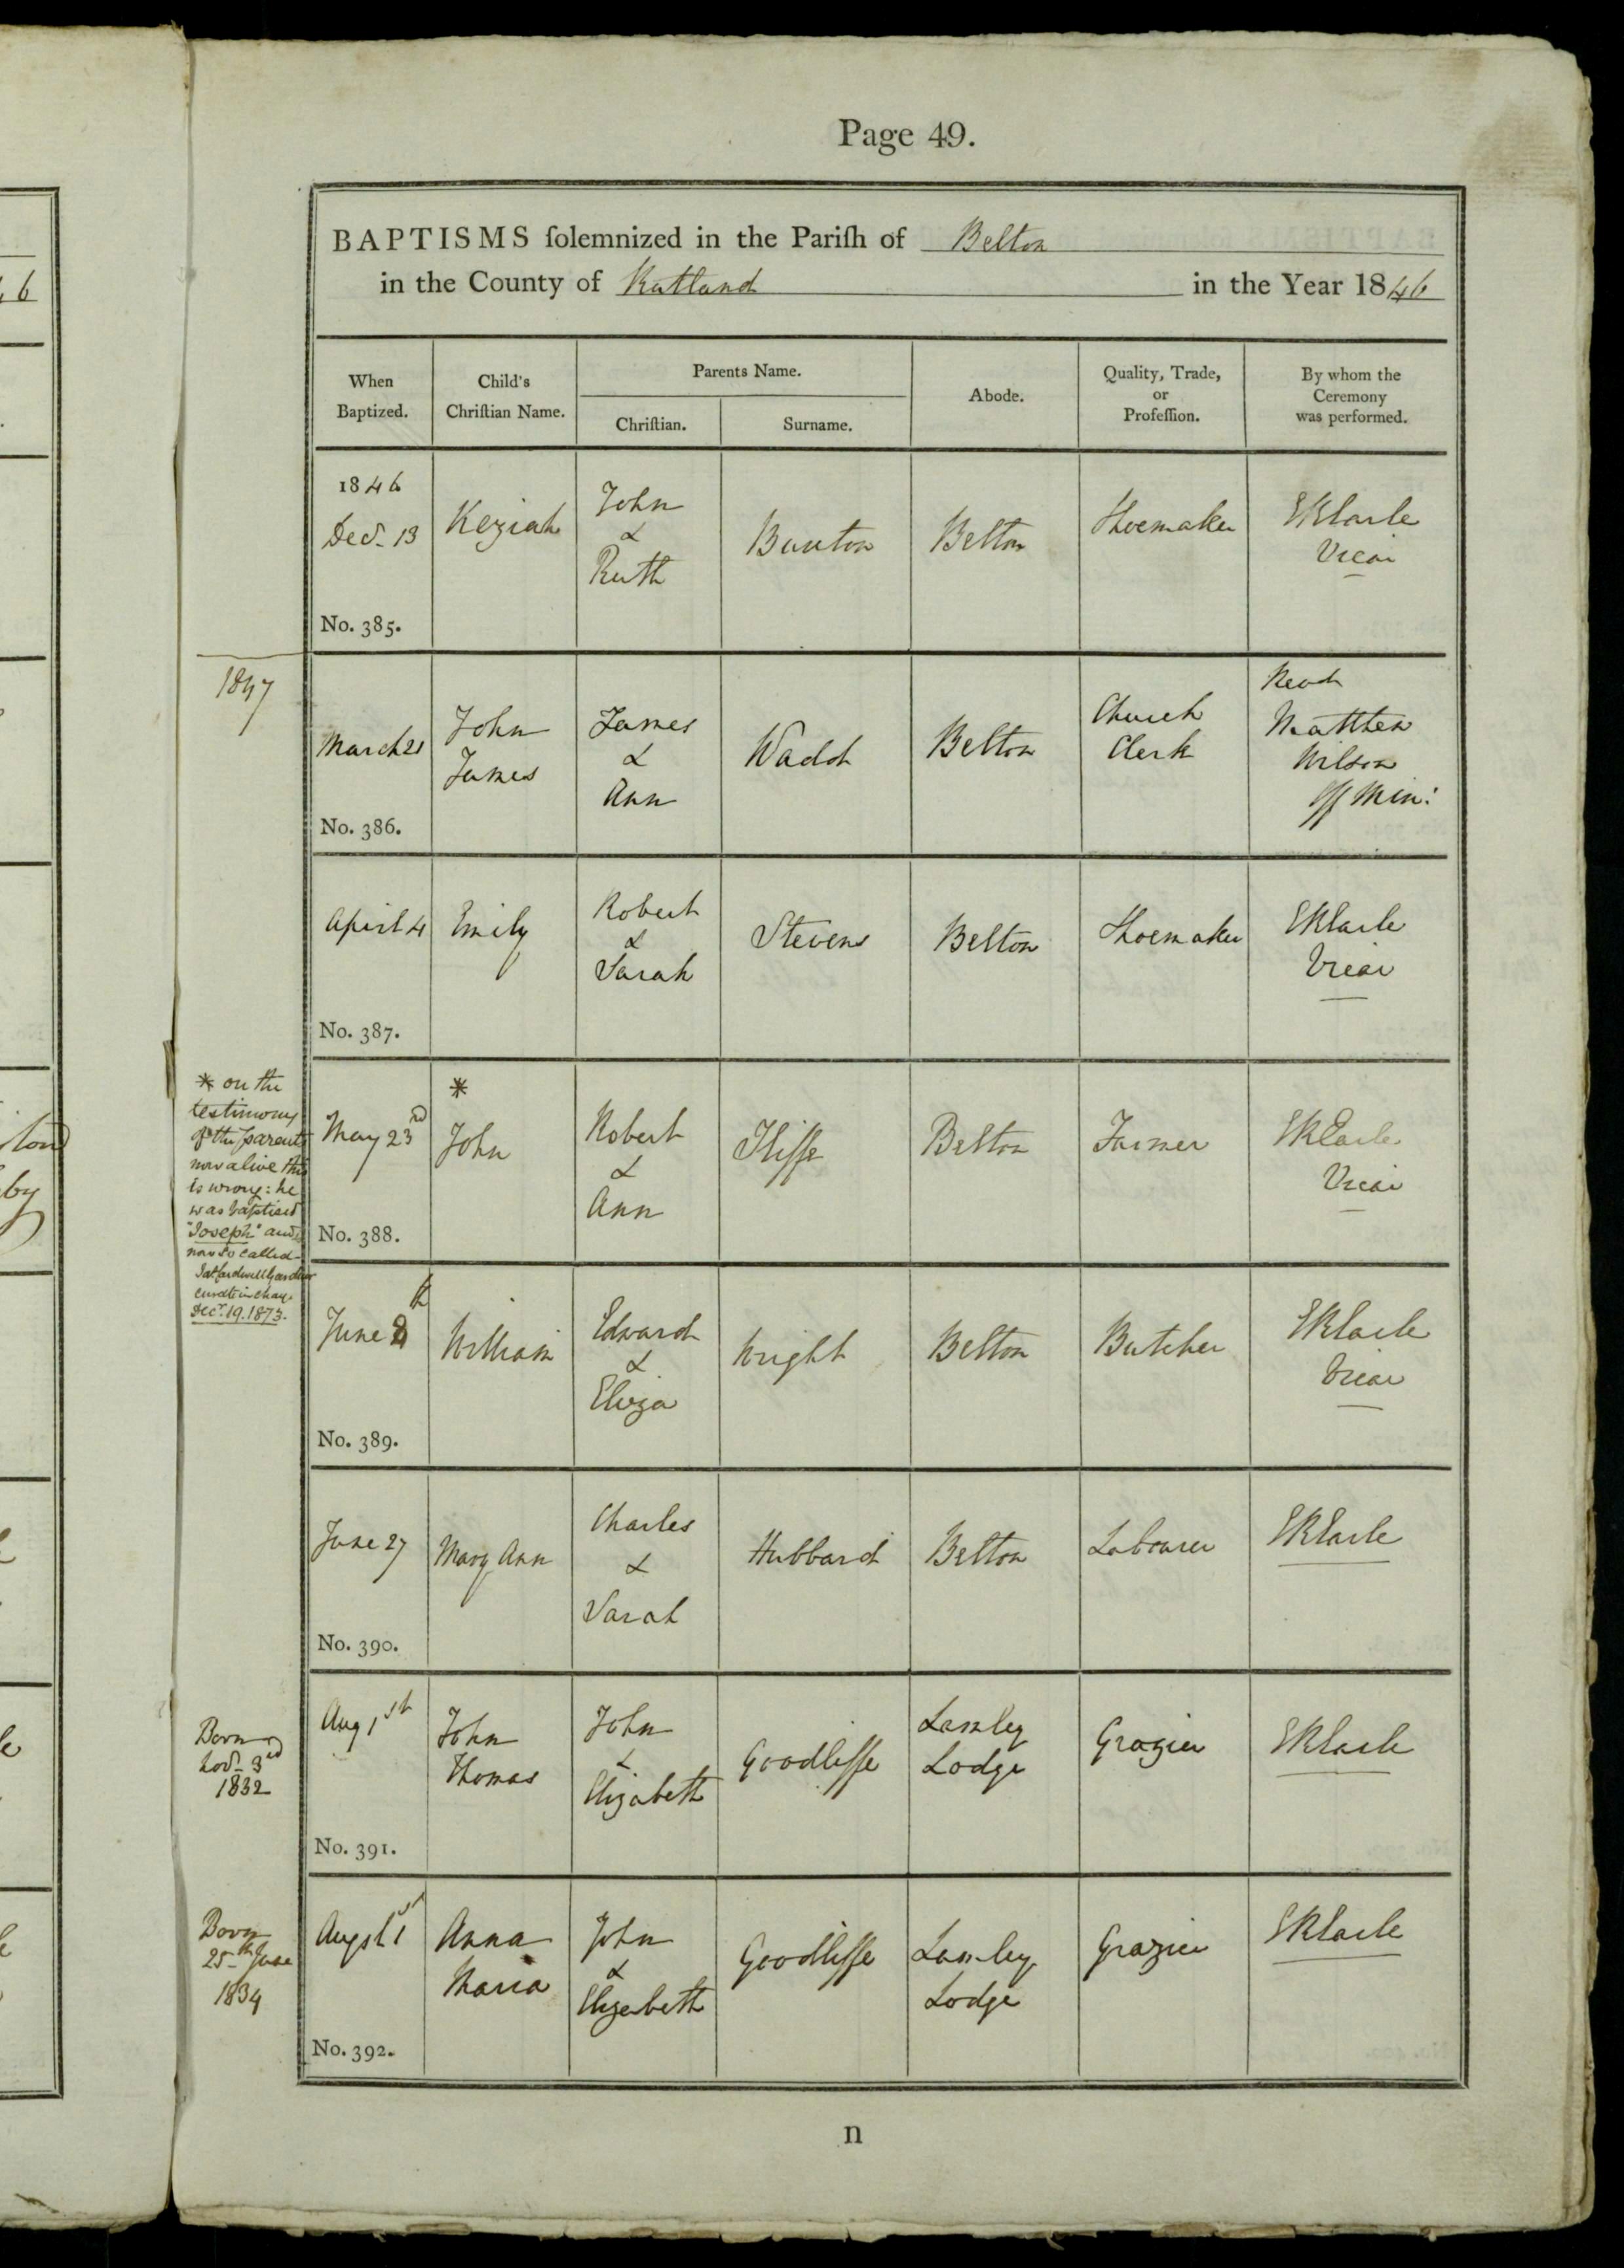 Page 49.
BAPTISMS ſolemnized in the Pariſh of Belton
in the County of Rutland in the Year 1846
When
Baptized.
Child's
Chriſtian Name.
Parents Name.
Chriſtian.
Surname.
Abode.
Quality, Trade,
or
Profeſſion.
By whom the
Ceremony
was performed.
1846
Decr. 13
No. 385.
Keziah
John
&
Ruth
Belton
Shoemaker
E K Earle
Vicar
1847
March 21
No. 386.
John
James
James
&
Ann
Wadd
Belton
Church
Clerk
Revd
Matthew
Wilson
Off Min:
April 4
No. 387.
Emily
Robert
&
Sarah
Stevens
Belton
Shoemaker
E K Earle
Vicar
* on the
testimony
of the parents
now alive this
is wrong: he
was baptised
"Joseph" and is
now so called.
curate in charge
Decr. 19. 1873.
May 23rd
No. 388.
*
John
Robert
&
Ann
Iliffe
Belton
Farmer
E K Earle
Vicar
June 8th
No. 389.
William
Edward
&
Eliza
Wright
Belton
Butcher
E K Earle
Vicar
June 27
No. 390.
Mary Ann
Charles
&
Sarah
Hubbard
Belton
Labourer
E K Earle
Born
Novr 3rd
1832
Aug 1st
No. 391.
John
Thomas
John
&
Elizabeth
Goodliffe
Lambley
Lodge
Grazier
E K Earle
Born
25th June
1834
Augst 1st
No. 392.
Anna
Maria
John
&
Elizabeth
Goodliffe
Lambley
Lodge
Grazier
E K Earle
n